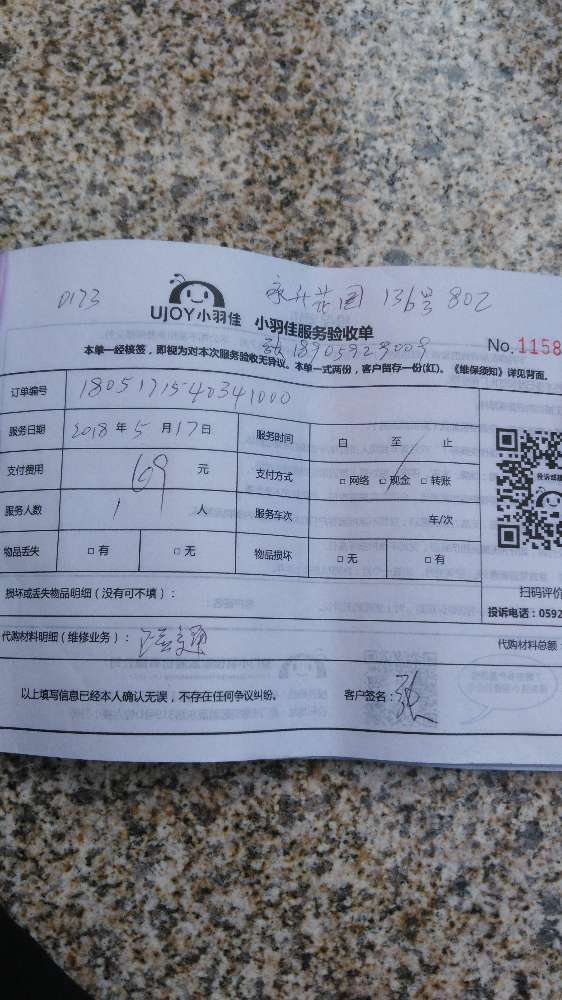 0173
永升花园 136号 802
UJOY小羽佳 小羽佳服务验收单
张 18905929009
No.1158
本单一经核签，即视为对本次服务验收无异议。本单一式两份，客户留存一份(红)。《维保须知》详见背面。
订单编号 1805171540341000
服务日期 2018 年 5 月 17 日 服务时间 自 至 止
支付费用 169 元 支付方式 □ 网络 □ 现金 □ 转账
服务人数 1 人 服务车次 车/次
物品丢失 □ 有 □ 无 物品损坏 □ 无 □ 有
投诉或建
扫码评价
损坏或丢失物品明细（没有可不填）：
投诉电话：0592
代购材料明细（维修业务）： 代购材料总额：
以上填写信息已经本人确认无误，不存在任何争议纠纷。 客户签名：张